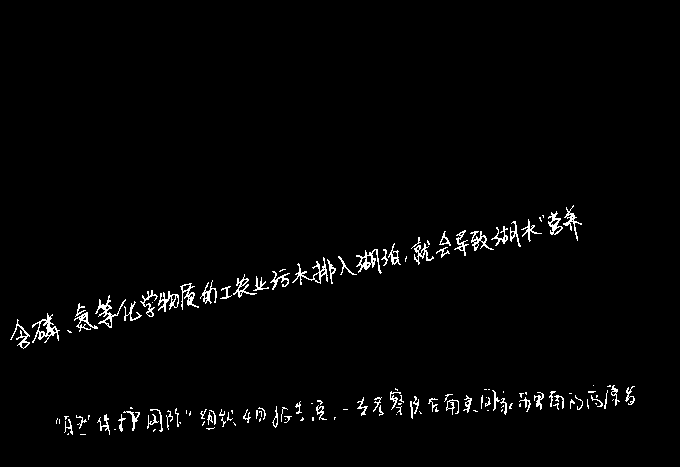 含磷、氮等化学物质的工农业污水排入湖泊,就会导致湖水"营养
"自然保护国际"组织4日报告说,一支考察队在南美国家苏里南的高原与